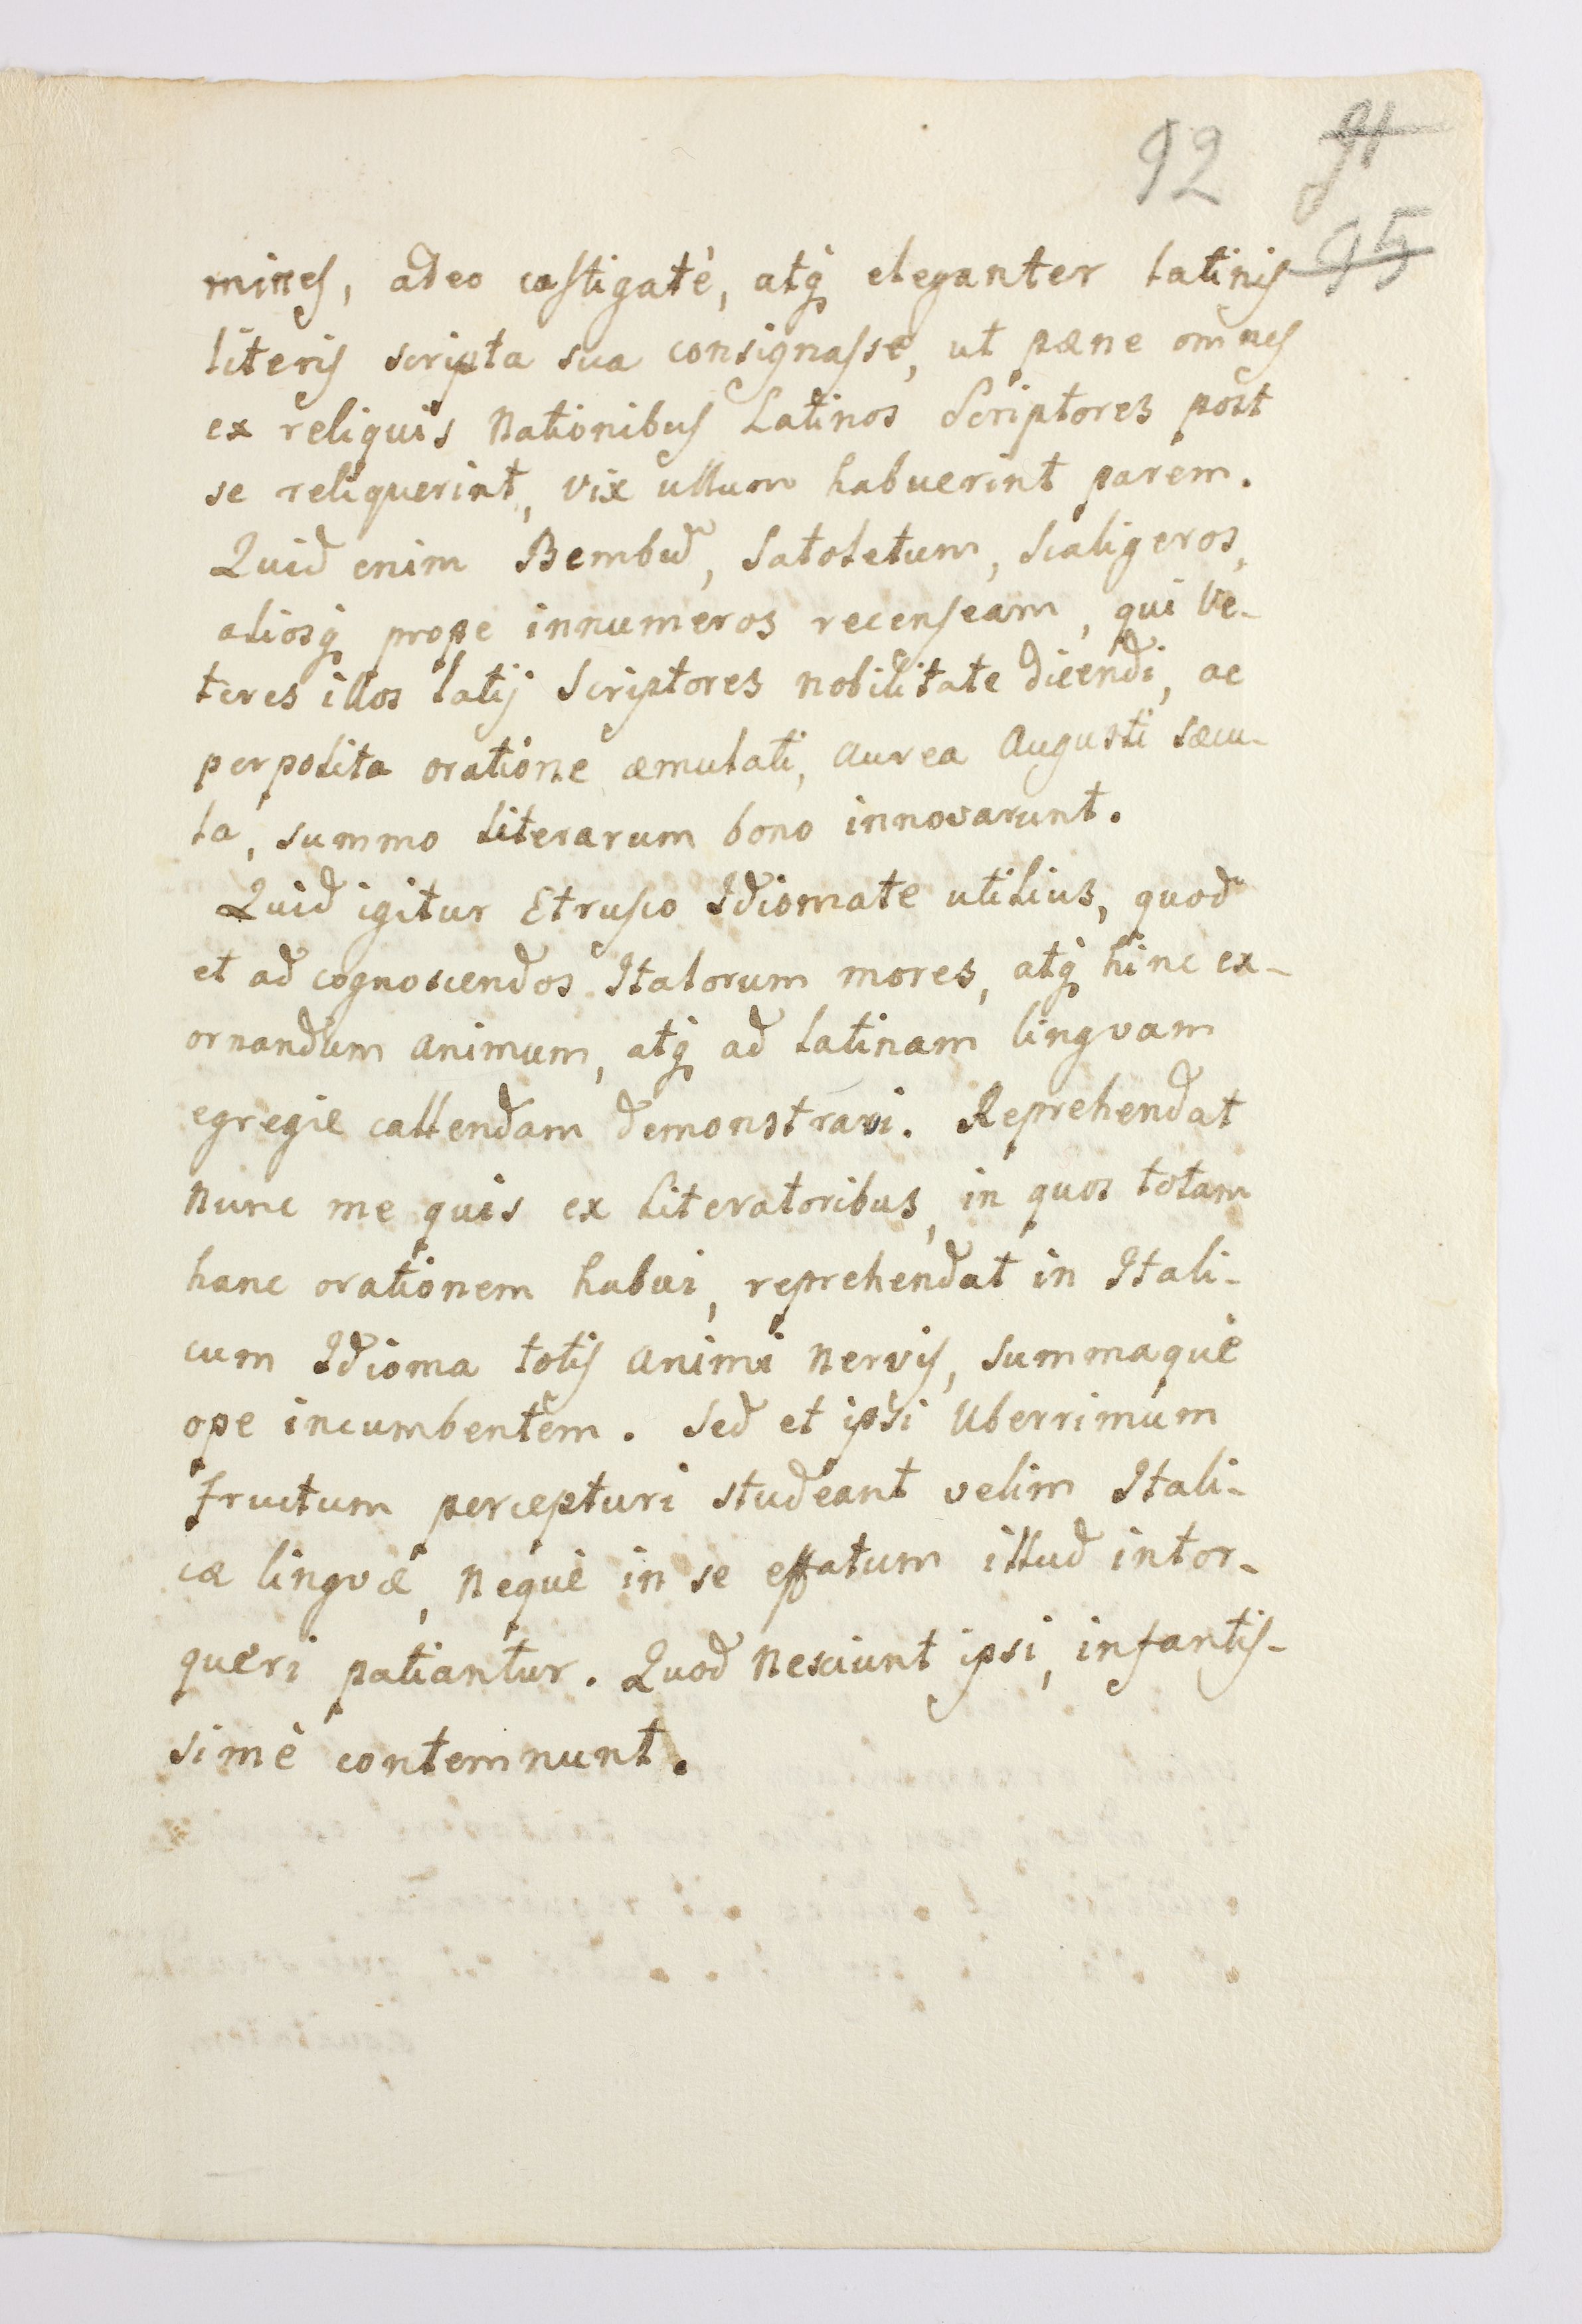 92 91
95
mines, adeo castigatè, atq́ eleganter latinis
literis scripta sua consignasse, ut pæne omnes
ex reliquis Nationibus Latinos Scriptores post
se reliquerint, vix ullum habuerint parem.
Quid enim Bembũ, Satoletum, Scaligeros,
aliosq́ prope innumeros recenseam, qui Ve-
teres illos latij Scriptores nobilitate dicendi, ac
perpolita oratione æmulati, aurea Augusti sæcu-
la, summo literarum bono innovarunt.
Quid igitur Etrusco Idiomate utilius, quod
et ad cognoscendos Italorum mores, atq́ hinc ex-
ornandum animum, atq́ ad latinam lingvam
egregie callendam demonstravi. Reprehendat
nunc me quis ex literatoribus, in quos totam
hanc orationem habui, reprehendat in Itali-
cum Idioma totis animi nervis, summaquè
ope incumbentem. Sed et ipsi uberrimum
fructum percepturi studeant velim Itali-
cæ lingvæ, nequè in se effatum illud intor-
queri patiantur. Quod nesciunt ipsi, infantis-
simè contemnunt.